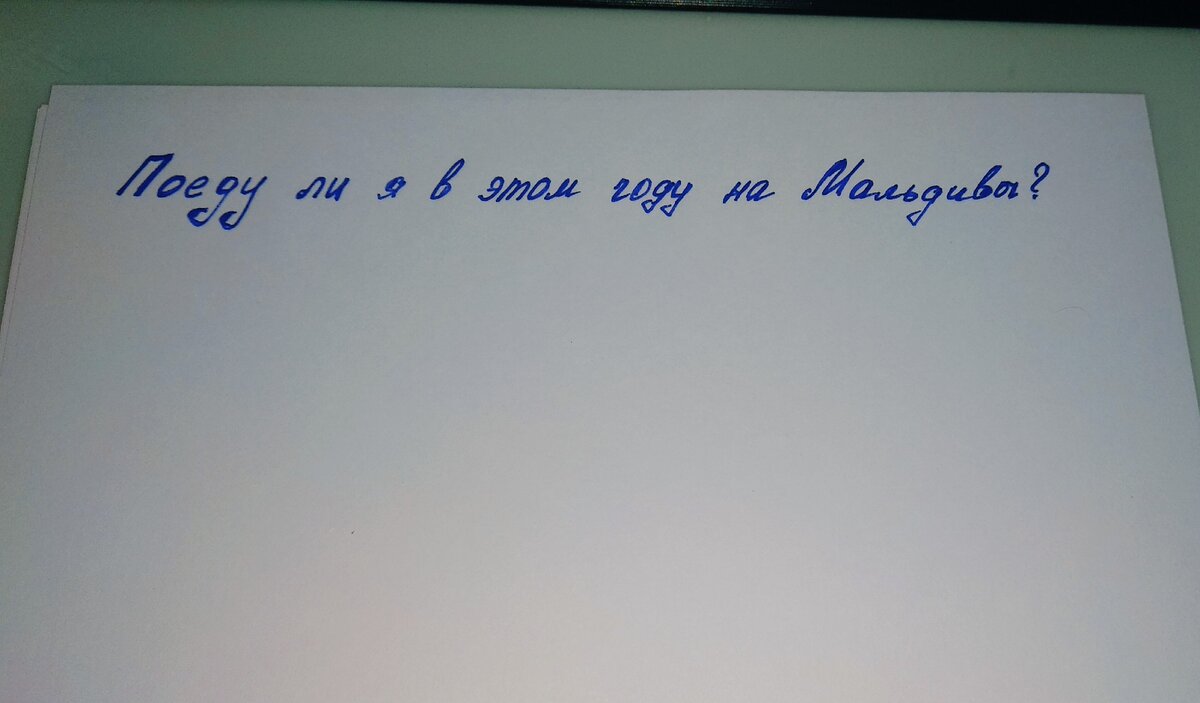 Поеду ли я в этом году на Мальдивы?